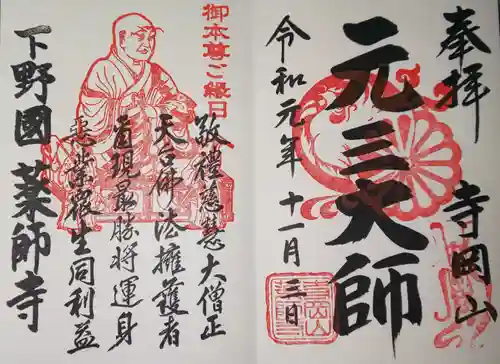 奉拝 寺岡山
元三大師
令和元年十一月三日
御本尊ご縁日
敬禮慈慧大僧正
天台佛法擁護者
示現最勝将軍身
悪業衆生同利益
下野國薬師寺